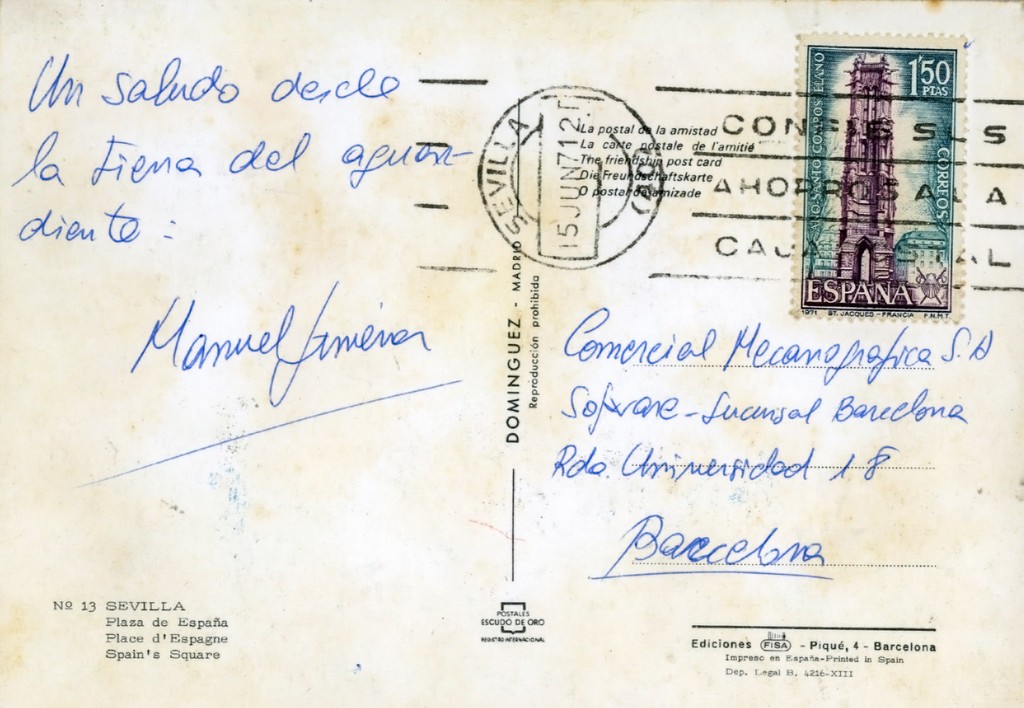 Un saludo desde
la tierra del aguar-
diente:
Manuel Jiménez
La postal de la amistad
La carte postale de l'amitié
The friendship post card
Die Freundschaftskarte
O postal da amizade
SEVILLA
15 JUN 71 2.T
CON
AHORROS A LA
CAJA POSTAL
AÑO SANTO COMPOSTELANO
1'50
PTAS
CORREOS
ESPAÑA
1971 ST. JACQUES - FRANCIA F.N.M.T.
DOMINGUEZ - MADRID
Reproducción prohibida
Comercial Mecanográfica S.A
Software - Sucursal Barcelona
Rda. Universidad 18
Barcelona
Nº 13 SEVILLA
Plaza de España
Place d'Espagne
Spain's Square
POSTALES
ESCUDO DE ORO
REGISTRO INTERNACIONAL
Ediciones FISA - Piqué, 4 - Barcelona
Impreso en España-Printed in Spain
Dep. Legal B. 4216-XIII